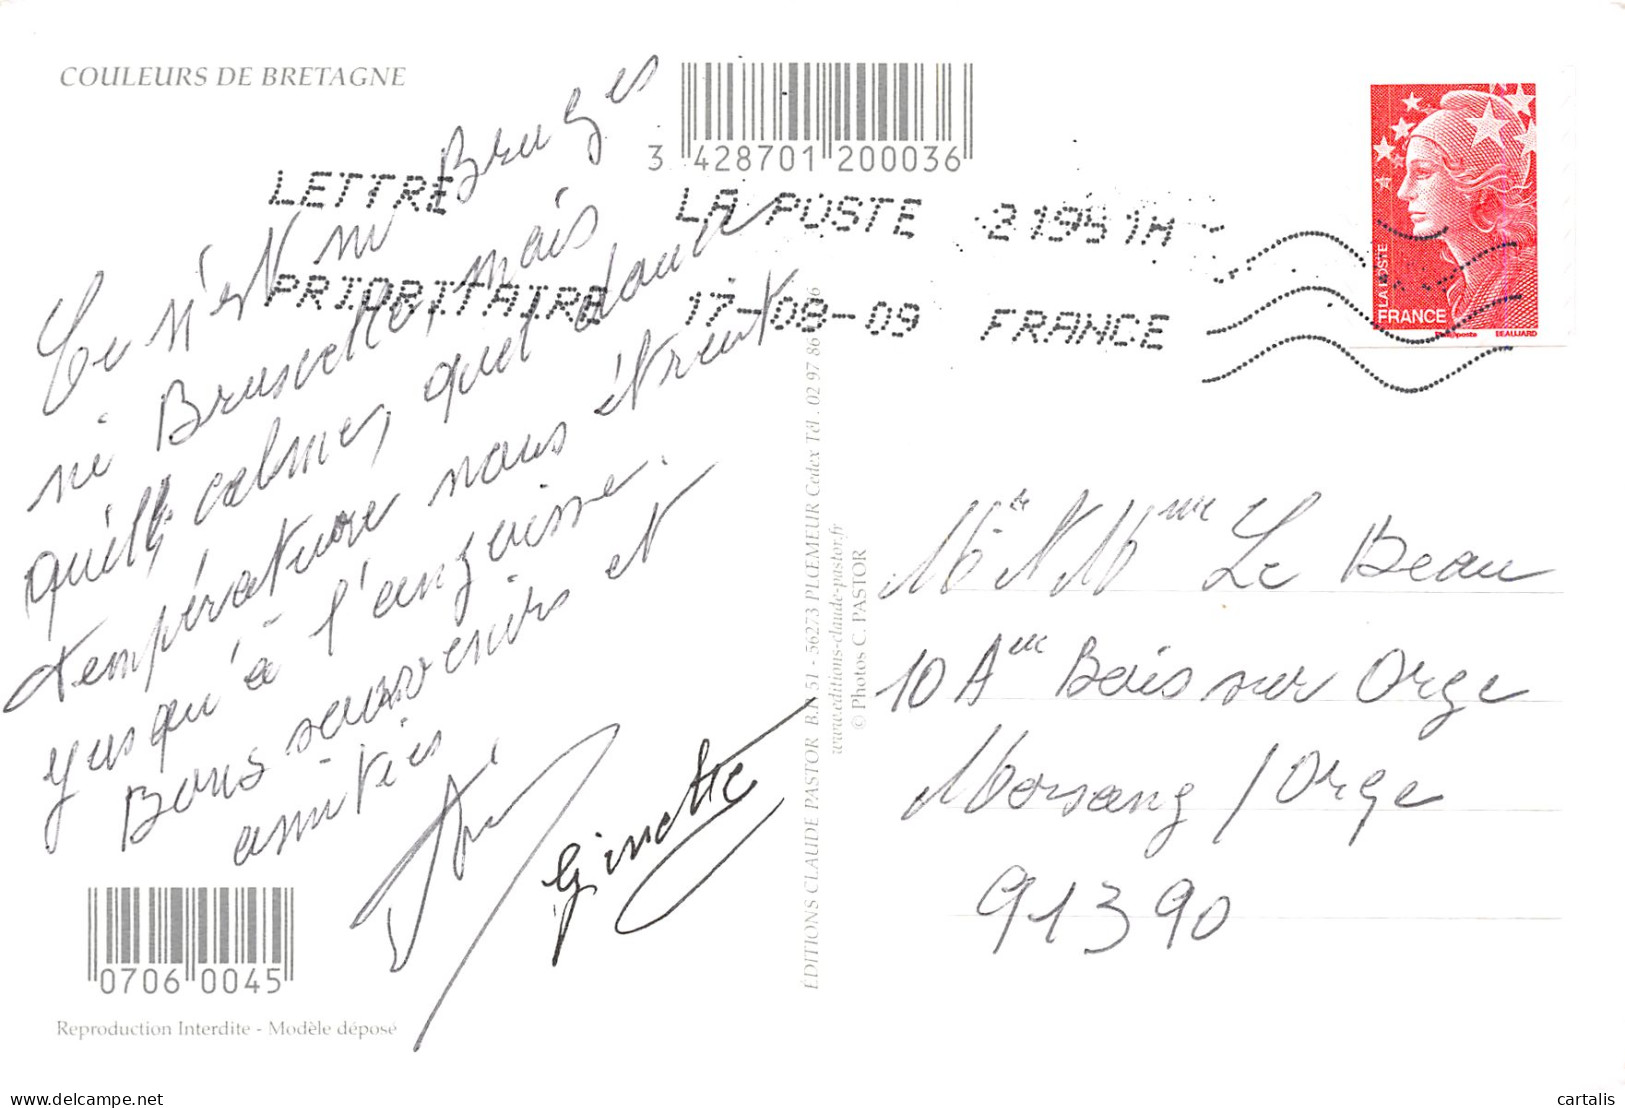 COULEURS DE BRETAGNE
3 428701 200036
LETTRE
PRIORITAIRE
LA POSTE
17-08-09
21951A
FRANCE
LA POSTE
FRANCE
Phil@poste
BEAUJARD
Ce n'est ni Bruges
ni Bruxelles, mais
quel calme, quel douce
température nous étreint
jusqu'à l'angoisse.
Bons souvenirs et
amitiés
Ginette
0706 0045
Reproduction Interdite - Modèle déposé
EDITIONS CLAUDE PASTOR B.P. 51 - 56273 PLŒMEUR Cedex Tél. 02 97 86
www.editions-claude-pastor.fr
© Photos C. PASTOR
Mme Le Beau
10 Bois sur Orge
Morsang / Orge
91390
cartalis